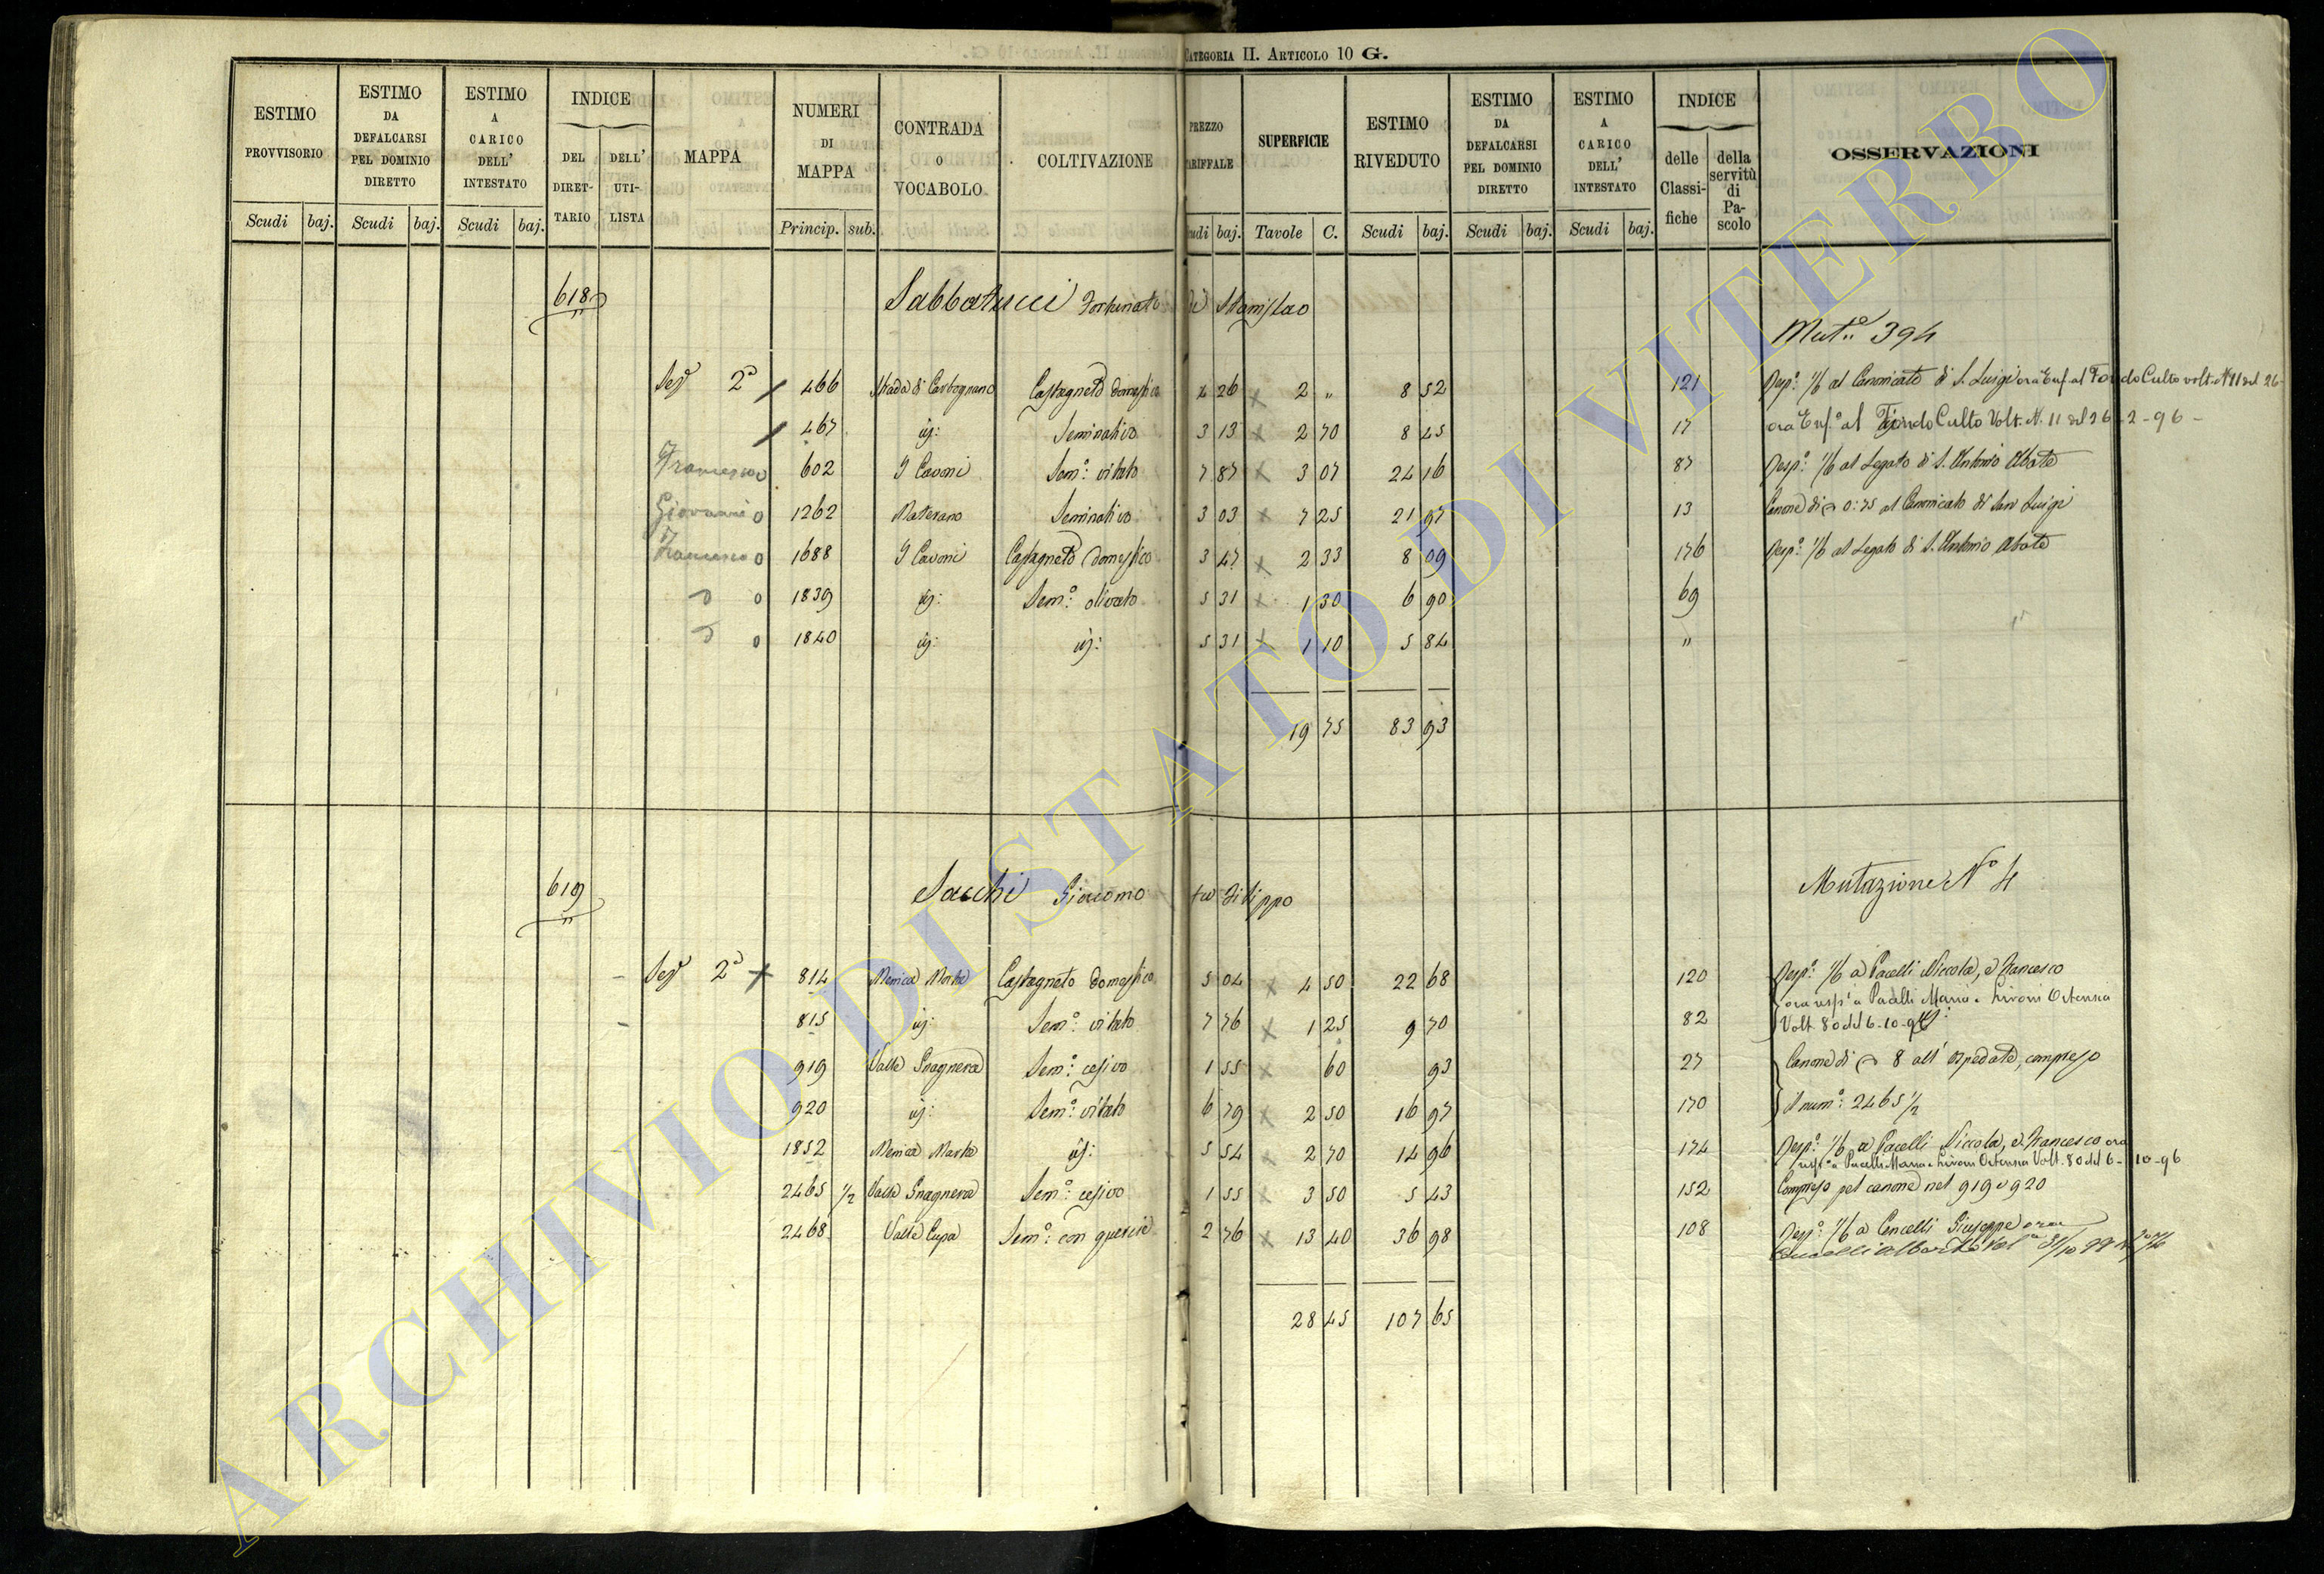 CATEGORIA II. ARTICOLO 10 G.
ESTIMO PROVVISORIO Scudi baj.
ESTIMO DA DEFALCARSI PEL DOMINIO DIRETTO Scudi baj.
ESTIMO A CARICO DELL' INTESTATO Scudi baj.
INDICE DEL DIRETTARIO DELL' UTILISTA
MAPPA
NUMERI DI MAPPA Princip. sub.
CONTRADA O VOCABOLO
COLTIVAZIONE
PREZZO TARIFFALE Scudi baj.
SUPERFICIE Tavole C.
ESTIMO RIVEDUTO Scudi baj.
ESTIMO DA DEFALCARSI PEL DOMINIO DIRETTO Scudi baj.
ESTIMO A CARICO DELL' INTESTATO Scudi baj.
INDICE delle Classifiche della servitù di Pascolo
OSSERVAZIONI
618 Sabbatucci Fortunato di Stanislao
Mut.e 394
Sez.e 2a 466 Strada di Carbognano Castagneto domestico 4 26 2 " 8 52 121 Resp.o 1/6 al Canonicato di S. Luigi ora Enf. al Fondo Culto volt. N 11 del 26
467 id: Seminativo 3 13 2 70 8 45 17 ora Enf.o al Fondo Culto Volt. N. 11 del 26-2-96-
Francesco 602 I Cavoni Sem.o vitato 7 87 3 07 24 16 87 Resp.o 1/6 al Legato di S. Antonio Abate
Giovanni 1262 Materano Seminativo 3 03 7 25 21 97 13 Canone di 0:75 al Canonicato di San Luigi
Francesco 1688 I Cavoni Castagneto domestico 3 47 2 33 8 09 176 Resp.o 1/6 al Legato di S. Antonio Abate
1839 id: Sem.o olivato 5 31 1 30 6 90 69
1840 id: id: 5 31 1 10 5 84 "
19 75 83 93
619 Sacchi Giacomo fu Filippo
Mutazione N.o 4
Sez.e 2a 814 Menica Marta Castagneto domestico 5 04 4 50 22 68 120 Resp.o 1/6 a Pacelli Niccola, e Francesco
ora resp.a Pacelli Maria e Ortensia
815 id: Sem.o vitato 7 76 1 25 9 70 82 Volt. 80 del 6-10-96
919 Valle Gnagnera Sem.o cesivo 1 55 60 93 27 Canone di 8 all' Ospedale, compreso
920 id: Sem.o vitato 6 79 2 50 16 97 170 il num.o 2465 1/2
1852 Menica Marta id: 5 54 2 70 14 96 174 Resp.o 1/6 a Pacelli Niccola, e Francesco ora
resp.o a Pacelli Maria e Ortensia Volt. 80 del 6-10-96
2465 1/2 Valle Gnagnera Sem.o cesivo 1 55 3 50 5 43 152 Compreso pel canone nel 919 e 920
2468 Valle Cupa Sem.o con querce 2 76 13 40 36 98 108 Resp.o 1/6 a Cencelli Giuseppe ora
Cencelli Alberto
28 45 107 65
ARCHIVIO DI STATO DI VITERBO